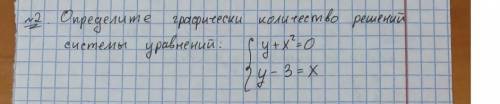 №2. Определите графически количество решений
системы уравнений: { y + x² = 0
y - 3 = x